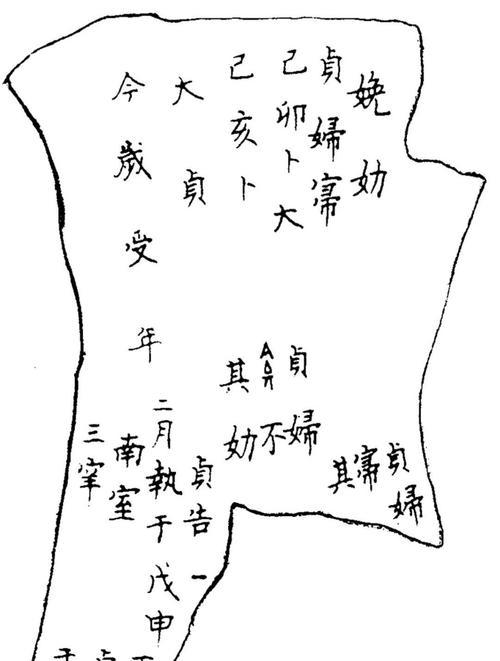 娩
貞婦
己卯卜大
己亥卜
大貞
今歲受年
貞婦
不
其
貞婦
其
貞告一
二月執于戊申
南室
三宰